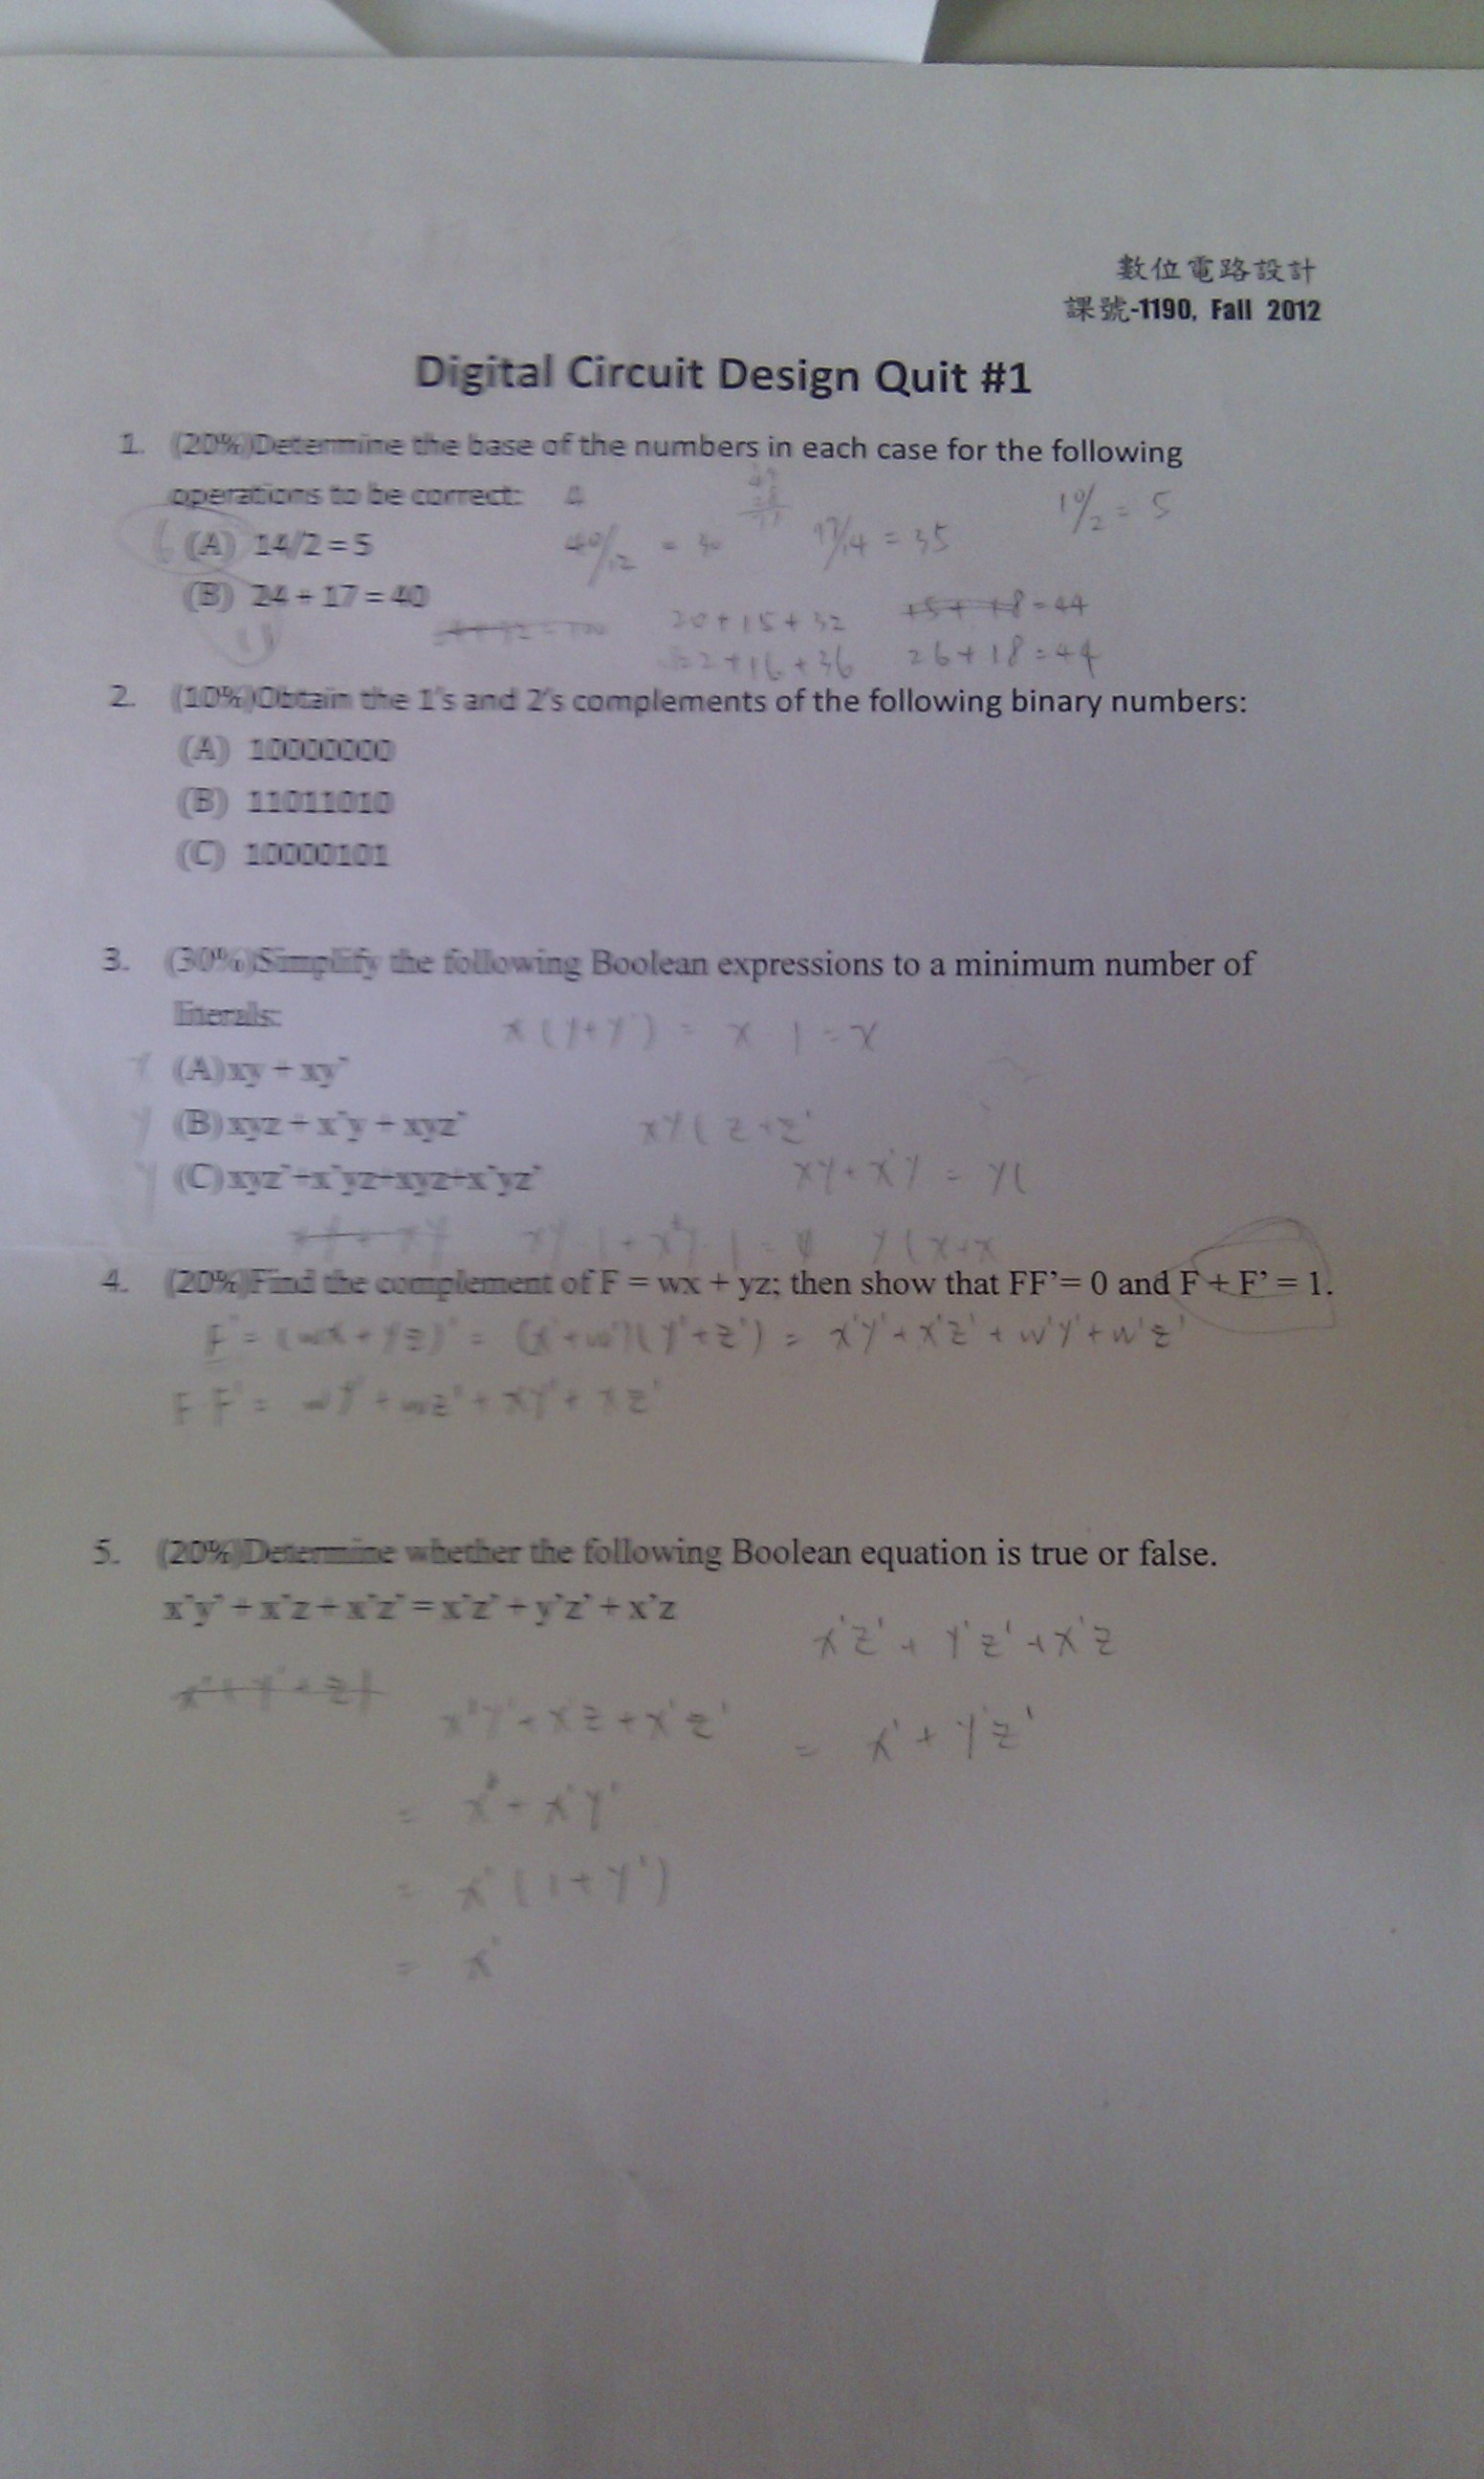 數位電路設計
課號-1190, Fall 2012
Digital Circuit Design Quit #1
1. (20%)Determine the base of the numbers in each case for the following
operations to be correct:
10/2 = 5
6 (A) 14/2 = 5
17/14 = 35
(B) 24 + 17 = 40
11
20+15+32
22+16+36 26+18=44
2. (10%)Obtain the 1's and 2's complements of the following binary numbers:
(A) 10000000
(B) 11011010
(C) 10000101
3. (30%)Simplify the following Boolean expressions to a minimum number of
literals:
x(y+y') = x 1 = x
(A)xy + xy'
(B)xyz + x'y + xyz'
xy(z+z'
(C)xyz'+x'yz+xyz+x'yz'
xy+x'y = y(
y(x+x
4. (20%)Find the complement of F = wx + yz; then show that FF'= 0 and F + F' = 1.
F' = (wx+yz)' = (x'+w')(y'+z') = x'y'+x'z'+w'y'+w'z'
FF' = wy'+wz'+xy'+xz'
5. (20%)Determine whether the following Boolean equation is true or false.
x'y' + x'z + x'z' = x'z' + y'z' + x'z
x'z' + y'z' + x'z
x'y'+x'z+x'z'
= x'+y'z'
= x'+x'y'
= x'(1+y')
= x'